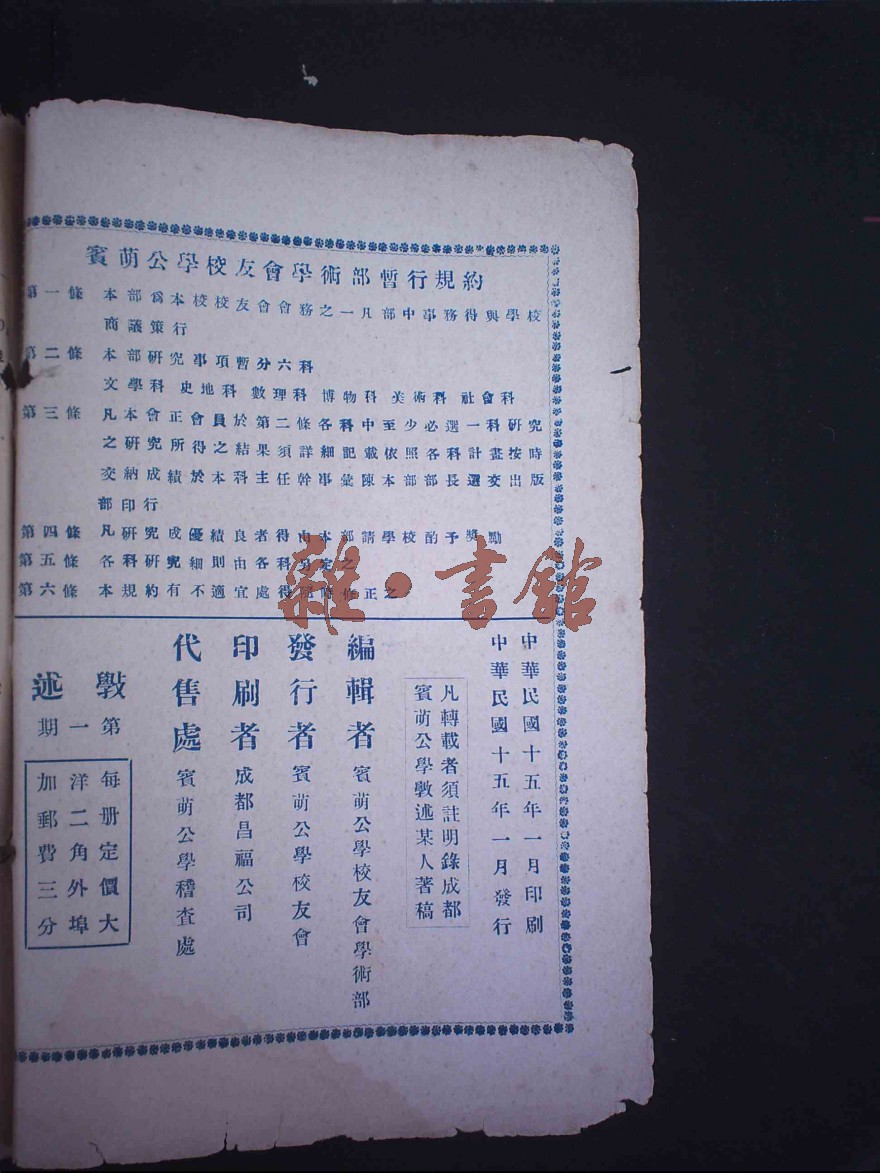 賓萌公學校友會學術部暫行規約
第一條 本部爲本校校友會會務之一凡部中事務得與學校
商議策行
第二條 本部研究事項暫分六科
文學科 史地科 數理科 博物科 美術科 社會科
第三條 凡本會正會員於第二條各科中至少必選一科研究
之研究所得之結果須詳細記載依照各科計畫按時
交納成績於本科主任幹事彙陳本部部長選交出版
部印行
第四條 凡研究成優績良者得由本部請學校酌予獎勵
第五條 各科研究細則由各科另定之
第六條 本規約有不適宜處得隨時修正之
雜·書館
中華民國十五年一月印刷
中華民國十五年一月發行
凡轉載者須註明錄成都
賓萌公學斆述某人著稿
編輯者 賓萌公學校友會學術部
發行者 賓萌公學校友會
印刷者 成都昌福公司
代售處 賓萌公學稽查處
斆述
第一期
每册定價大
洋二角外埠
加郵費三分